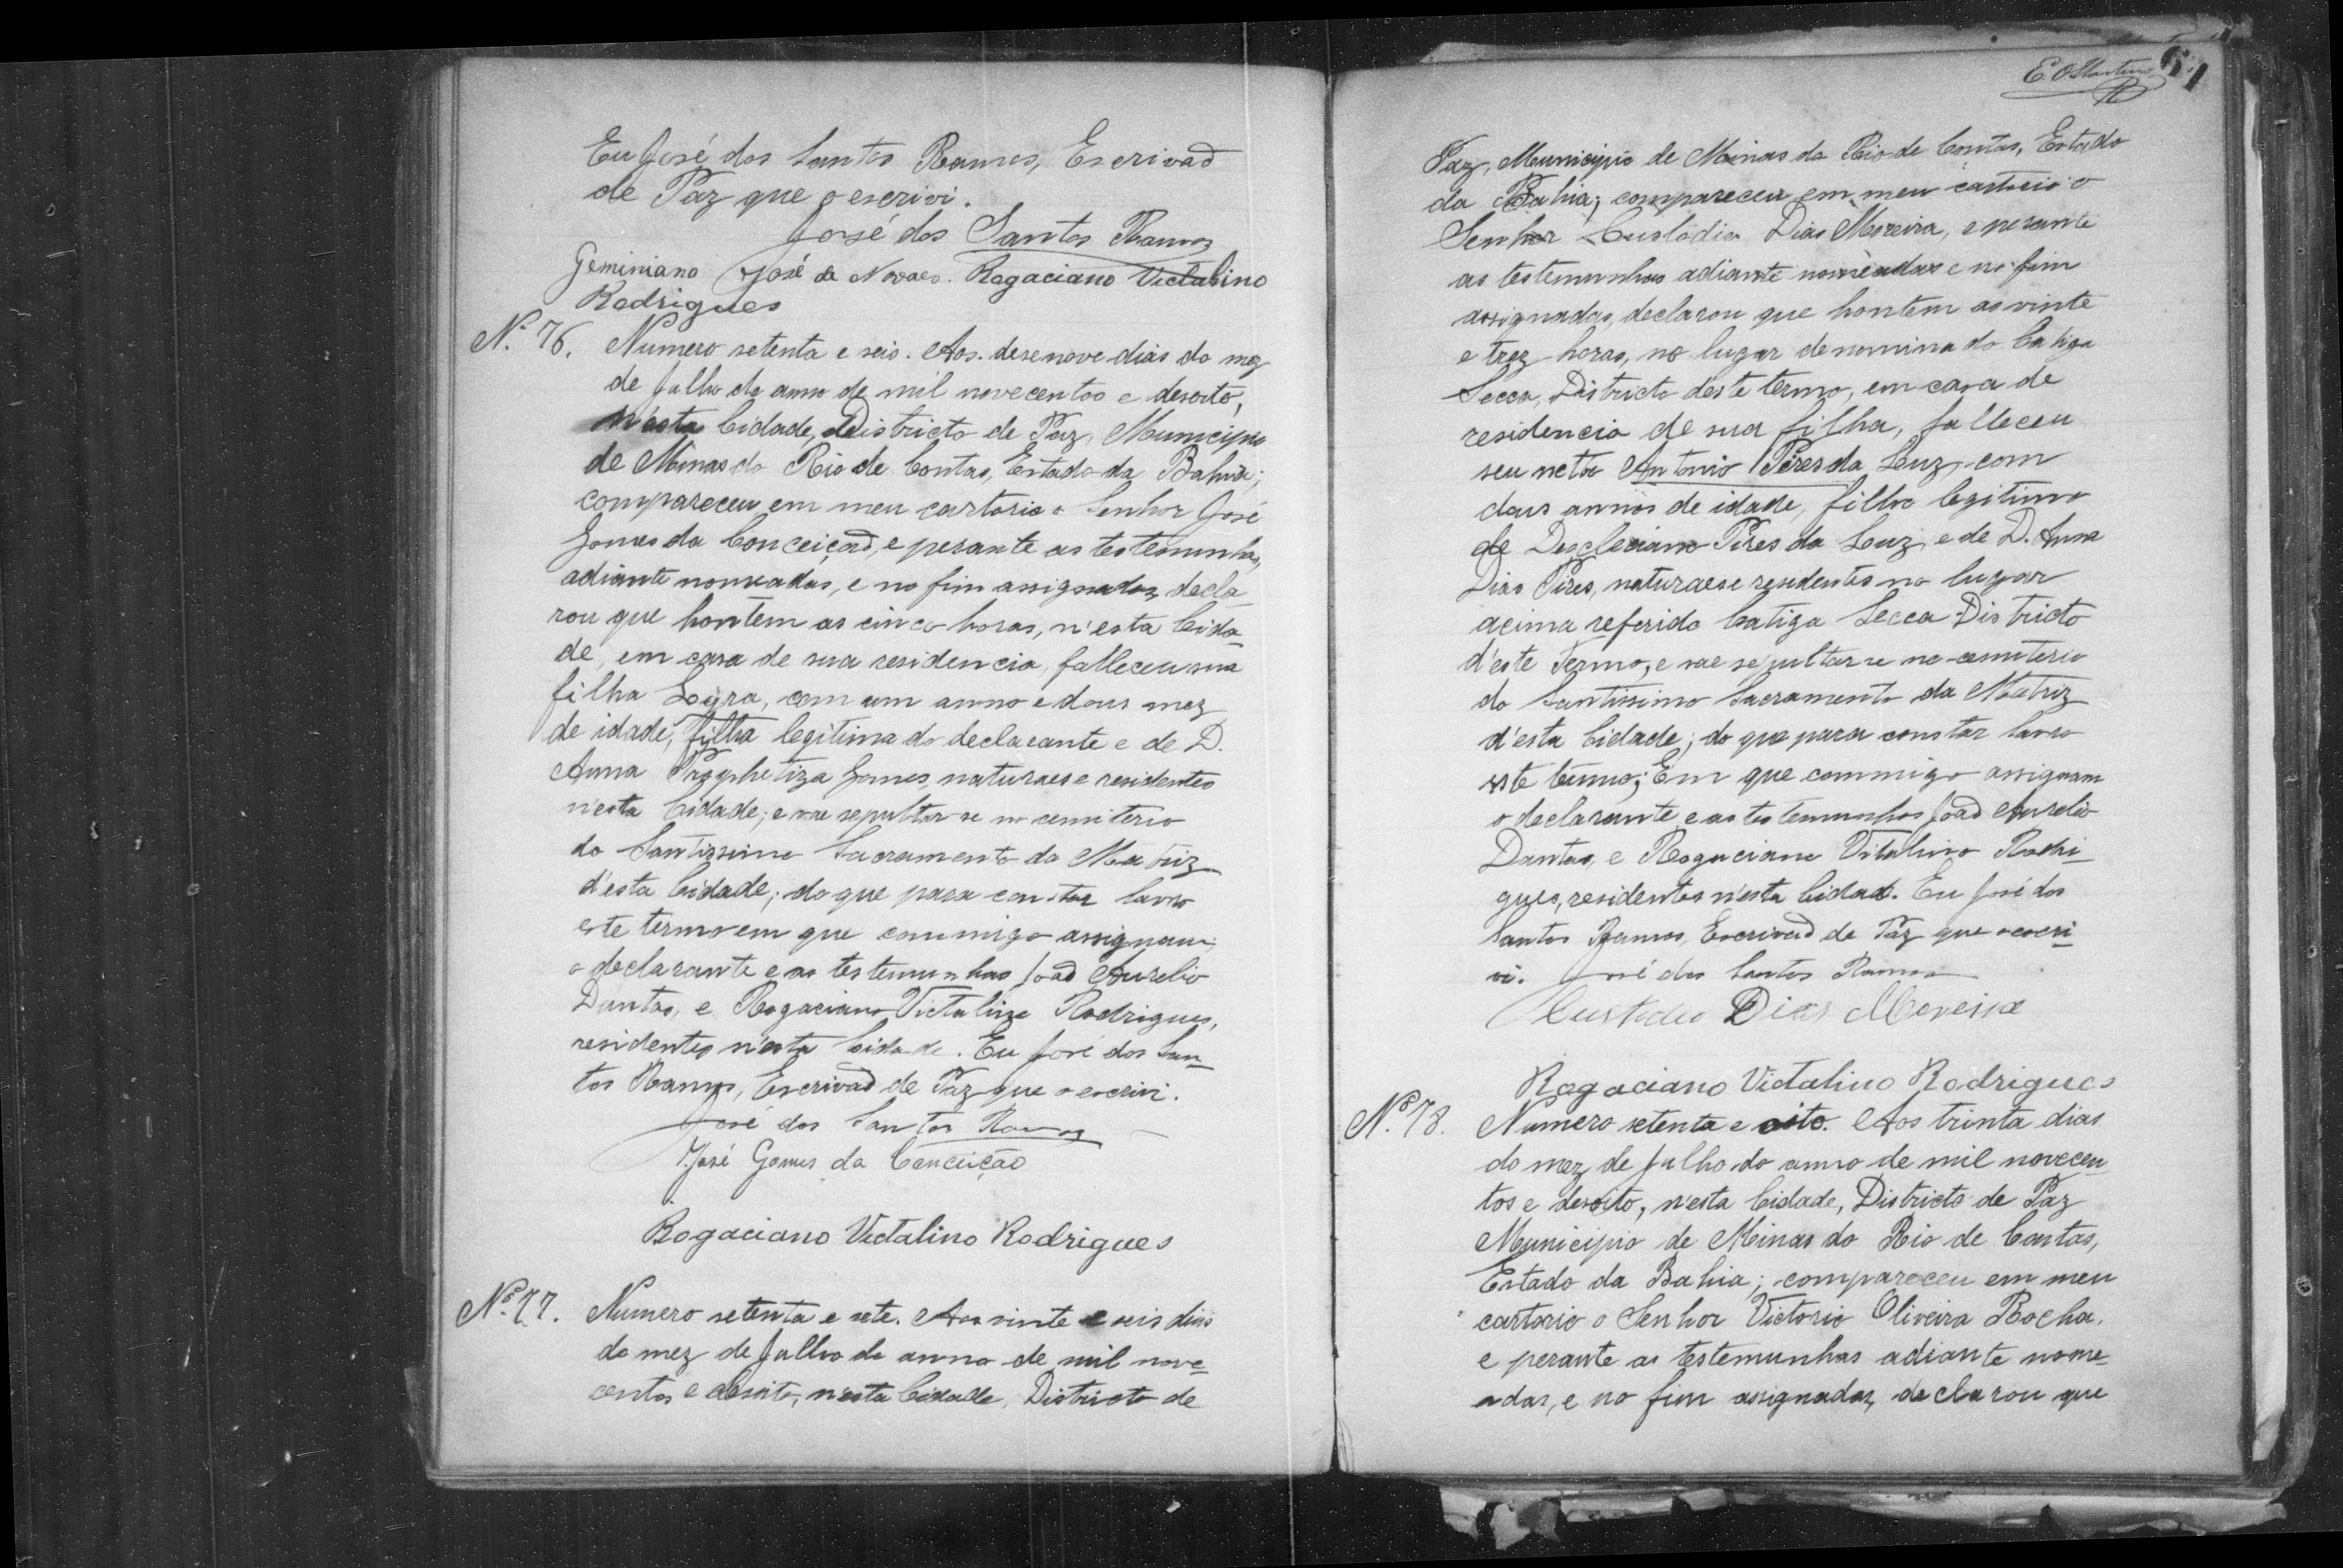 Eu José dos Santos Ramos, Escrivaõ
de Paz que o escrivi.
José dos Santos Ramos
Geminiano José de Novaes. Rogaciano Victalino
Rodrigues
Nº 76. Numero setenta e seis. Aos desenove dias do mez
de Julho do anno de mil novecentos e desoito,
n'esta Cidade, Districto de Paz, Municipio
de Minas do Rio de Contas, Estado da Bahia;
compareceu em meu cartorio o Senhor José
Gomes da Conceiçaõ, e perante as testemunhas,
adiante nomeadas, e no fim assignadas, decla-
rou que hontem as cinco horas, n'esta Cida-
de, em casa de sua residencia, falleceu sua
filha Lyra, com um anno e dous mez
de idade, filha legitima do declarante e de D.
Anna Prophetiza Gomes, naturaes e residentes
n'esta Cidade; e vae sepultar-se no cemiterio
do Santissimo Sacramento da Matriz
d'esta Cidade; do que para constar lavro
este termo em que commigo assignam
o declarante e as testemunhas Joaõ Aurelio
Dantas, e Rogaciano Victalino Rodrigues,
residentes n'esta Cidade. Eu José dos San-
tos Ramos, Escrivaõ de Paz que o escrivi.
José dos Santos Ramos
José Gomes da Conceição
Rogaciano Victalino Rodrigues
Nº 77. Numero setenta e sete. Aos vinte e seis dias
do mez de Julho do anno de mil nove-
centos e desoito, n'esta Cidade, Districto de
E O Martins
61
Paz, Municipio de Minas do Rio de Contas, Estado
da Bahia; compareceu em meu cartorio o
Senhor Custodio Dias Moreira, e perante
as testemunhas adiante nomeadas e no fim
assignadas, declarou que hontem as vinte
e trez horas, no lugar denominado Catiga
Secca, Districto deste termo, em casa de
residencia de sua filha, falleceu
seu neto Antonio Pires da Luz, com
dous annos de idade, filho legitimo
de Deocleciano Pires da Luz, e de D. Anna
Dias Pires, naturaes e residentes no lugar
acima referido Catiga Secca Districto
d'este Termo, e vae sepultar se no cemiterio
do Santissimo Sacramento da Matriz
d'esta Cidade; do que para constar lavro
este termo; Em que commigo assignam
o declarante e as testemunhas Joaõ Aurelio
Dantas, e Rogaciano Vitalino Rodri-
gues, residentes n'esta Cidade. Eu José dos
Santos Ramos, Escrivaõ de Paz que o escri-
vi. José dos Santos Ramos
Custodio Dias Moreira
Rogaciano Victalino Rodrigues
Nº 78. Numero setenta e oito. Aos trinta dias
do mez de Julho do anno de mil novecen-
tos e desoito, n'esta Cidade, Districto de Paz
Municipio de Minas do Rio de Contas,
Estado da Bahia; compareceu em meu
cartorio o Senhor Victorio Oliveira Rocha,
e perante as testemunhas adiante nome-
adas, e no fim assignadas, declarou que